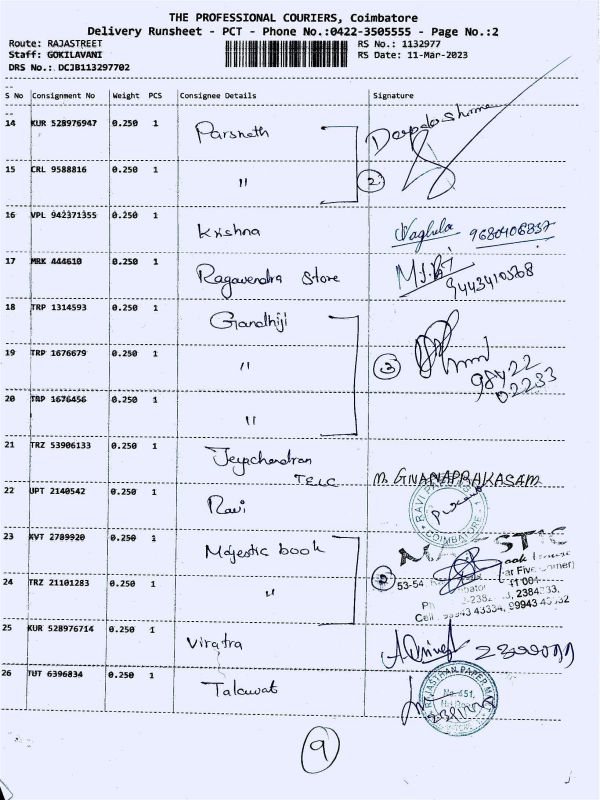 THE PROFESSIONAL COURIERS, Coimbatore
Delivery Runsheet - PCT - Phone No.:0422-3505555 - Page No.:2
Route: RAJASTREET
RS No.: 1132977
Staff: GOKILAVANI
RS Date: 11-Mar-2023
DRS No.: DCJB113297702
S No Consignment No Weight PCS Consignee Details Signature
14 KUR 528976947 0.250 1 Parsnath
15 CRL 9588816 0.250 1 " 2
16 VPL 942371355 0.250 1 Krishna Naghula 9680406837
17 MRK 444610 0.250 1 Ragavendra Store 9443410568
18 TRP 1314593 0.250 1 Gandhiji
19 TRP 1676679 0.250 1 " 3 98422
02233
20 TRP 1676456 0.250 1 "
21 TRZ 53906133 0.250 1 Jeyachandran
TELC M. GNANAPRAKASAM
22 UPT 2140542 0.250 1 Ravi RAVI COIMBATORE
23 KVT 2789920 0.250 1 Majestic book
24 TRZ 21101283 0.250 1 " 2 53-54, 2384233,
Cell 43334, 99943
25 KUR 528976714 0.250 1 Viratra
26 TUT 6396834 0.250 1 Talawat RAJASTHAN PAPER MART
No. 451,
9